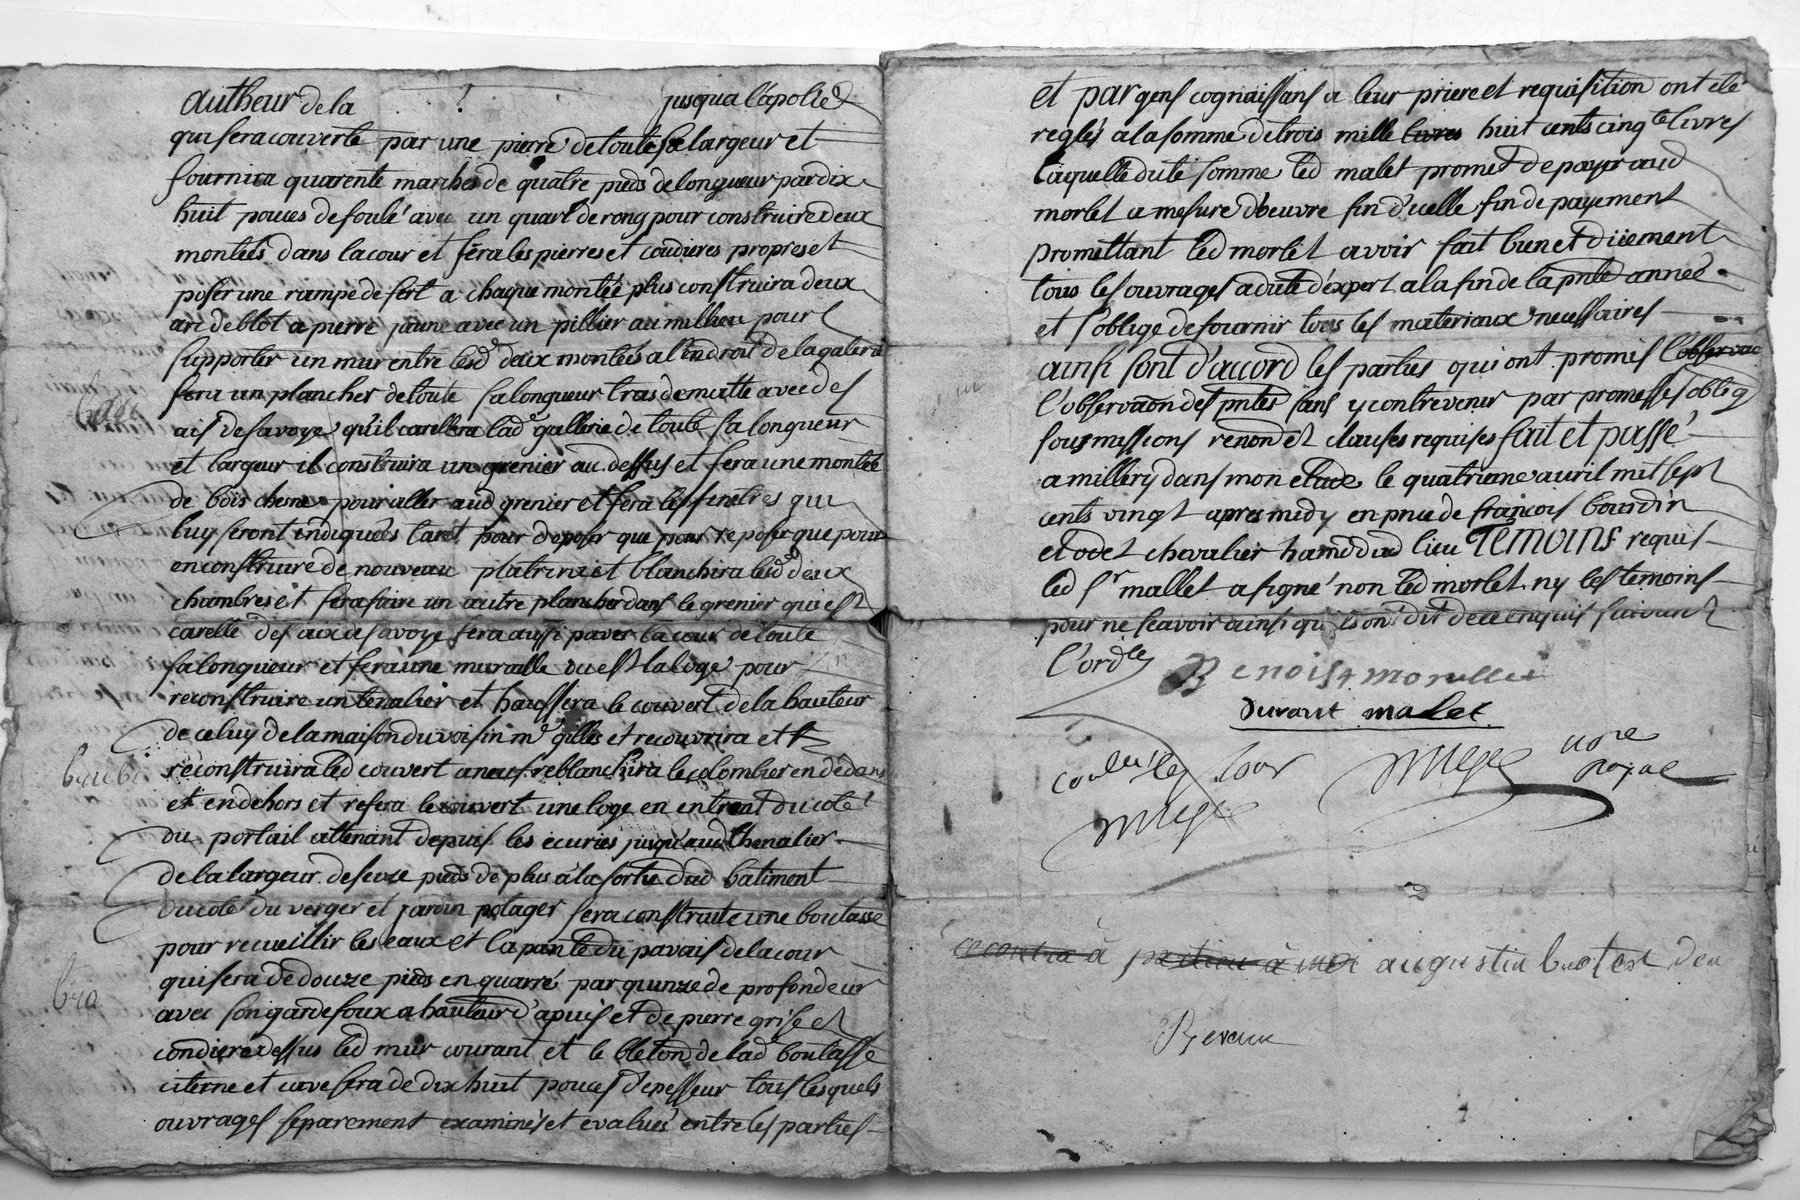 autheur de la ? jusqua lapolied
qui sera couverte par une pierre de toute sa largeur et
fournira quarente marches de quatre pieds de longueur par dix
huit pouces de foulé avec un quart de rong pour construire deux
montées dans la cour et fera les pierres et coudieres propres et
poser une rampe de fert a chaque montée plus construira deux
arc de blot a pierre jaune avec un pillier au millieu pour
supporter un mur entre lesd deux montées a l'endroit de la galerie
fera un plancher de toute sa longueur tras de matte avec des
ais de savoye qu'il carellera lad gallerie de toute sa longueur
et largeur il construira un grenier au dessus et fera une montée
de bois chesne pour aller aud grenier et fera les fenetres qui
luy seront indiquées tant pour deposer que pour reposer que pour
en construire de nouveau platrira et blanchira lesd deux
chambres et fera faire un autre plancher dans le grenier qui est
carellé des aix de savoye fera aussi paver la cour de toute
sa longueur et fera une muraille ou est la loge pour
reconstruire un tenalier et haussera le couvert de la hauteur
de celuy de la maison du voisin mr gilles et recouvrira et
reconstruira led couvert a neuf reblanchira le colombier en dedans
et en dehors et refera le couvert une loge en entrant du coté
du portail attenant depuis les ecuries jusqu'aud thenalier
de la largeur de seize pieds de plus a la sortie dud batiment
du coté du verger et jardin potager sera construite une boutasse
pour recueillir les eaux et la pante du pavais de la cour
qui sera de douze pieds en quarré par quinze de profondeur
avec son gardefoux a hauteur d'apuis et de pierre grise et
condiere dessus led mur courant et le bleton de lad boutasse
citerne et cuve sera de dix huit pouces d'epesseur tous lesquels
ouvrages separement examinés et evalués entre les parties
et par gens cognaissans a leur priere et requisition ont eté
reglés a la somme de trois mille livres huit cents cinqte livres
laquelle dite somme led malet promet de payer aud
morlet a mesure d'oeuvre fin d'icelle fin de payement
promettant led morlet avoir fait bien et düement
tous les ouvrages a dute d'expert a la fin de la pnte année
et s'oblige de fournir tous les materiaux necessaires
ainsi sont d'accord les parties qui ont promis l'observac
l'observaon des pntes sans y contrevenir par promesses oblig
soumissions renon et clauses requises fait et passé
a millery dans mon etude le quatrieme avril mil sept
cents vingt apres midy en pnce de françois bourdin
et odet chevalier ham dud lieu TEMOINS requis
led sr mallet a signé non led morlet ny les temoins
pour ne scavoir ainsi qu'ils ont dit de ce enquis suivant
l'ordce
Benoist morellet
Durant malet
mege nore
royal
mege
ce contra à partien à moi augustin